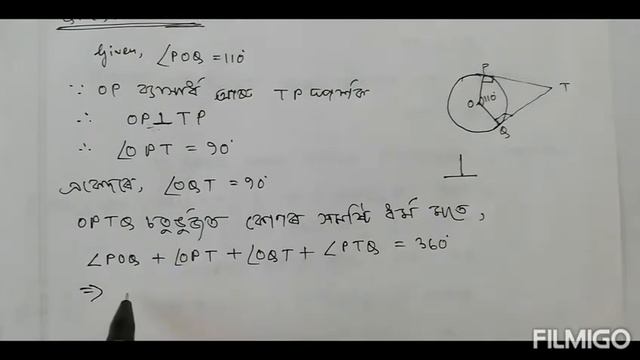 Given, ∠POQ = 110°
∵ OP ব্যাসাৰ্ধ আৰু TP স্পৰ্শক
∴ OP ⊥ TP
∴ ∠OPT = 90°
একেদৰে, ∠OQT = 90°
OPTQ চতুৰ্ভুজৰ কোণৰ সমষ্টি ধৰ্ম মতে,
∠POQ + ∠OPT + ∠OQT + ∠PTQ = 360°
⇒
P
T
O 110°
Q
⊥
FILMIGO